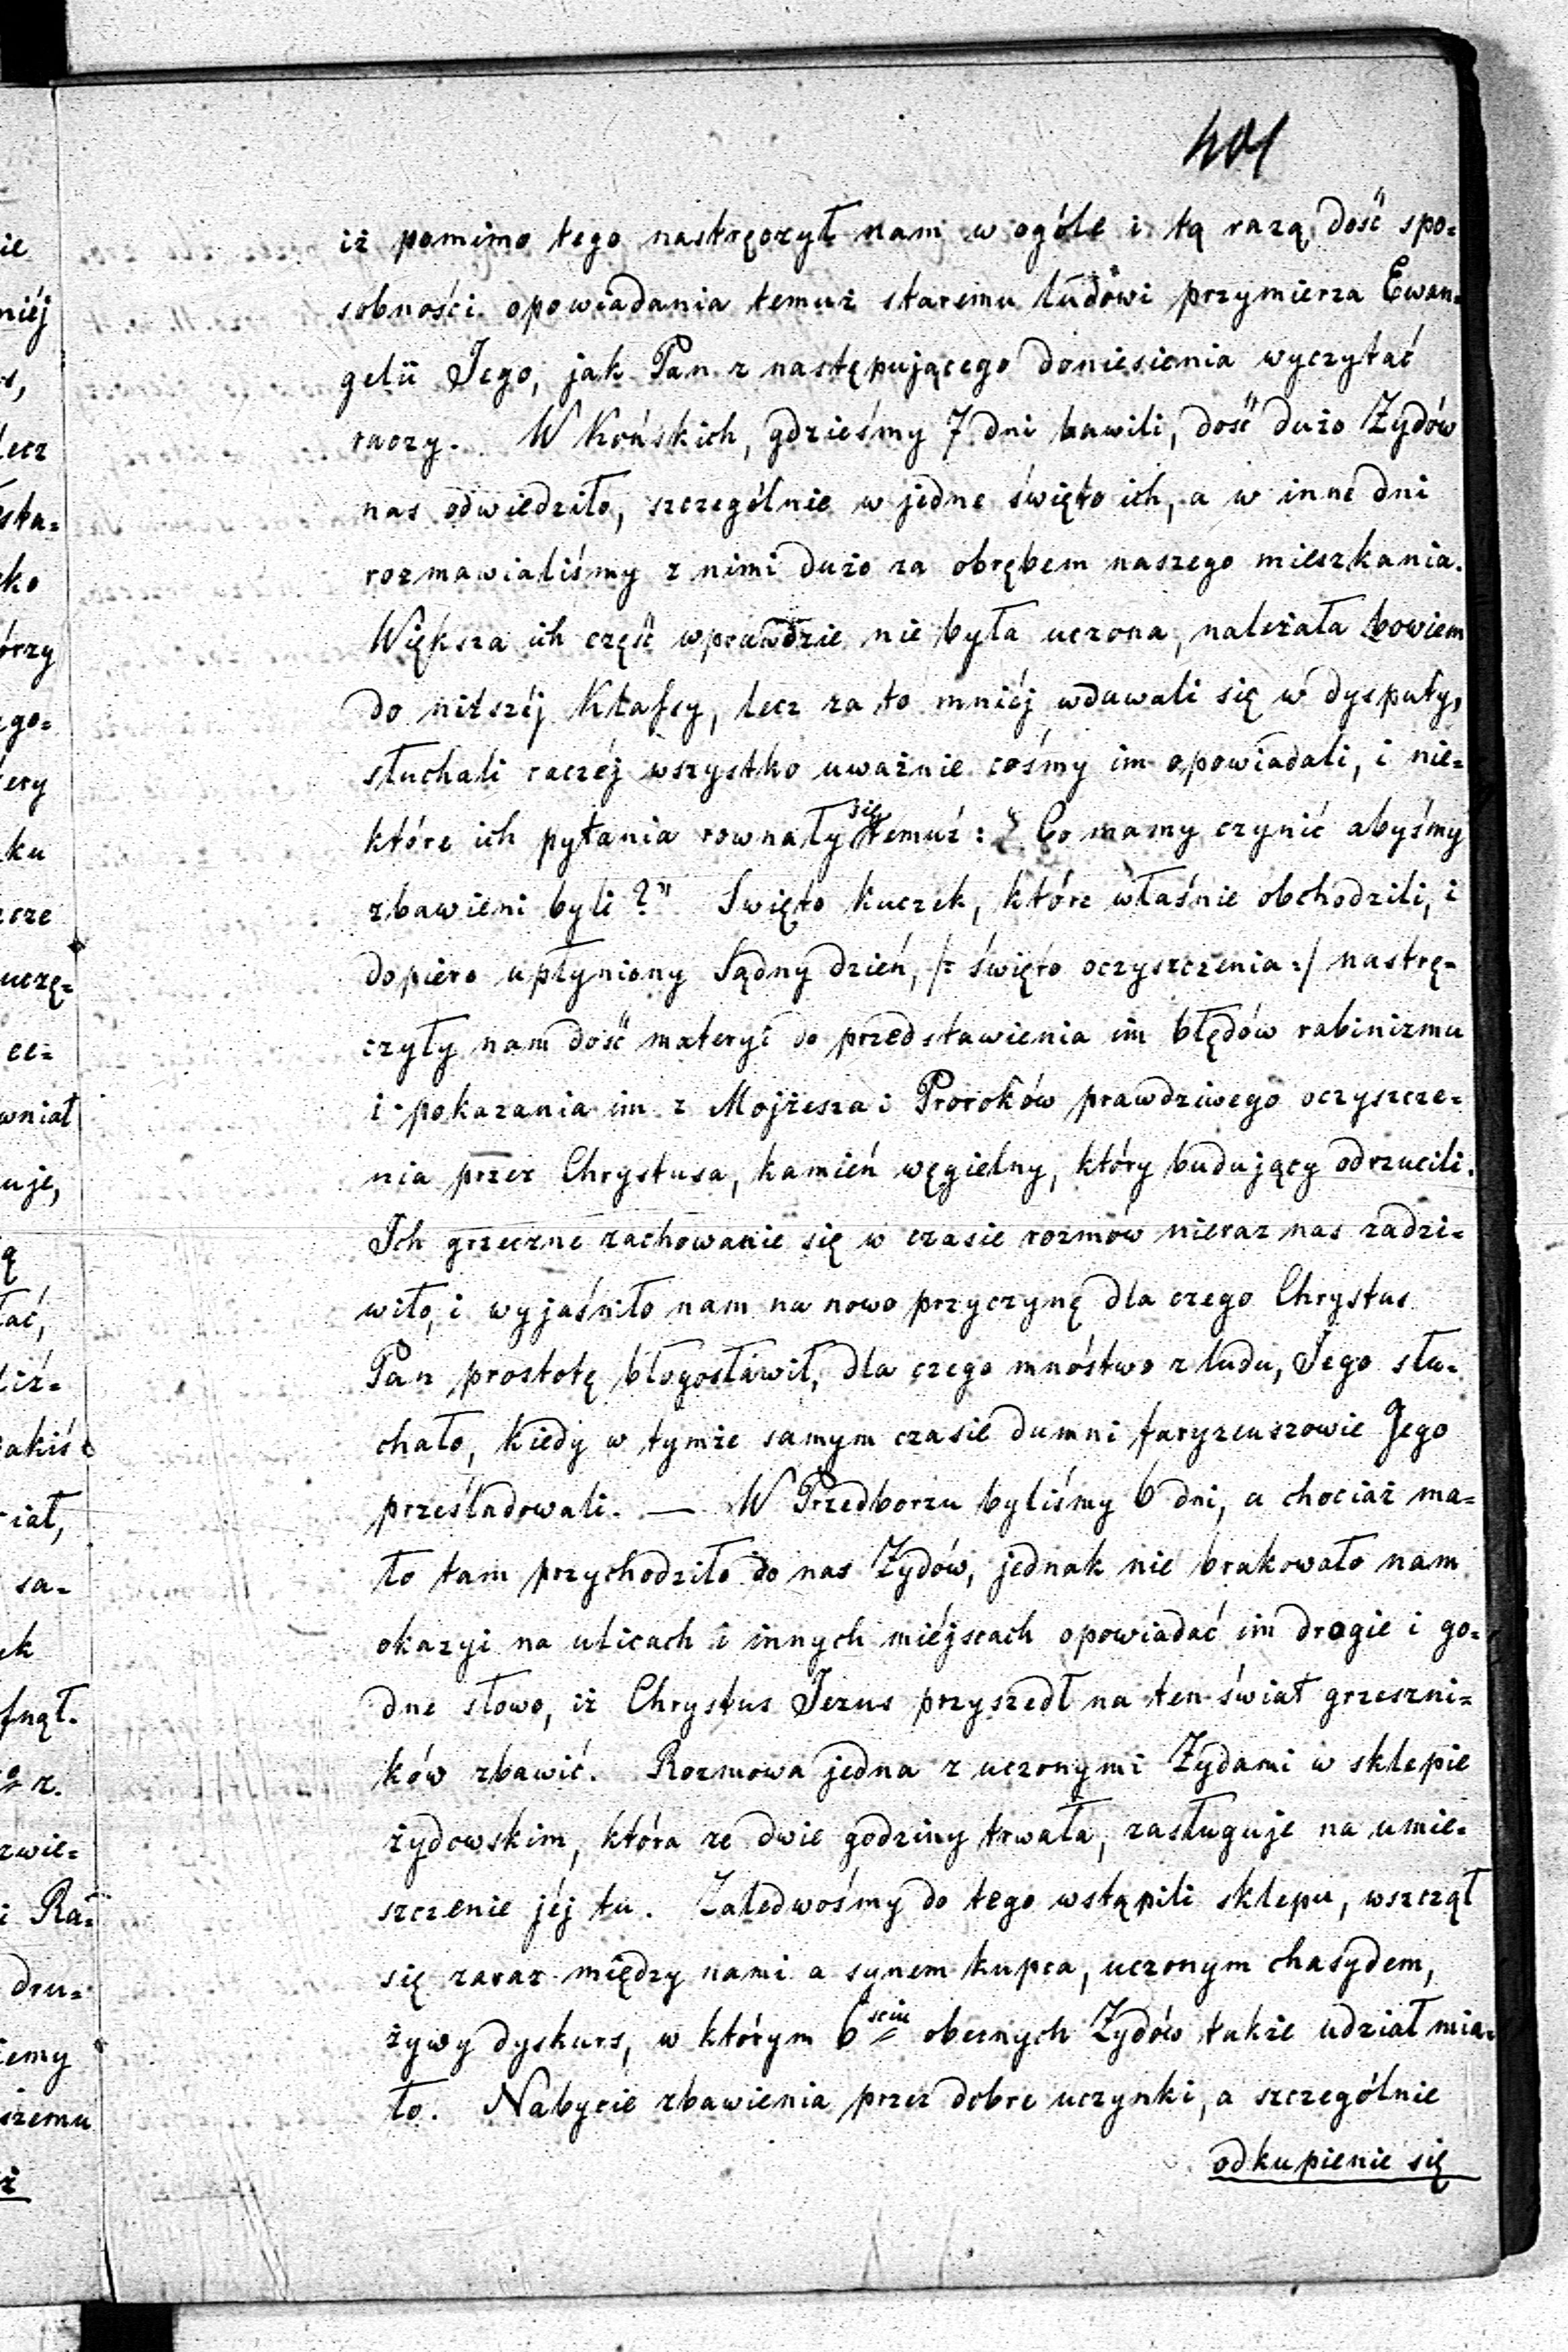 401
iż pomimo tego nastręczył nam w ogóle i tą razą dość spo=
sobności opowiadania temuż staremu ludowi przymierza Ewan=
gelii Jego, jak Pan z następującego doniesienia wyczytać
raczy. W Końskich, gdzieśmy 7 dni bawili, dość dużo Żydów
nas odwiedziło, szczególnie w jedne święto ich, a w inne dni
rozmawialiśmy z nimi dużo za obrębem naszego mieszkania.
Większa ich część wprawdzie nie była uczona, należała bowiem
do niższéj klassy, lecz za to mniéj wdawali się w dysputy,
słuchali raczéj wszystko uważnie cośmy im opowiadali, i nie=
które ich pytania rownały się temuż: „Co mamy czynić abyśmy
zbawieni byli?” Święto kuczek, które właśnie obchodzili, i
dopiero upłyniony Sądny dzień, /: święto oczyszczenia :/ nastrę=
czyły nam dość materyi do przedstawienia im błędów rabinizmu
i pokazania im z Mojżesza i Proroków prawdziwego oczyszcze=
nia przez Chrystusa, kamień węgielny, który budujący odrzucili.
Ich grzeczne zachowanie się w czasie rozmów nieraz nas zadzi=
wiło, i wyjaśniło nam na nowo przyczynę dla czego Chrystus
Pan prostotę błogosławił, dla czego mnóstwo z ludu, Jego słu=
chało, kiedy w tymże samym czasie dumni faryzeuszowie Jego
prześladowali. — W Przedborzu byliśmy 6 dni, a chociaż ma=
ło tam przychodziło do nas Żydów, jednak nie brakowało nam
okazyi na ulicach i innych miéjscach opowiadać im drogie i go=
dne słowo, iż Chrystus Jezus przyszedł na ten świat grzeszni=
ków zbawić. Rozmowa jedna z uczonymi Żydami w sklepie
żydowskim, która ze dwie godziny trwała, zasługuje na umie=
szczenie jéj tu. Zaledwośmy do tego wstąpili sklepu, wszczął
się zaraz między nami a synem kupca, uczonym chasydem,
żywy dyskurs, w którym 6ściu obecnych Żydów także udział mia=
ło. Nabycie zbawienia przez dobre uczynki, a szczególnie
odkupienie się